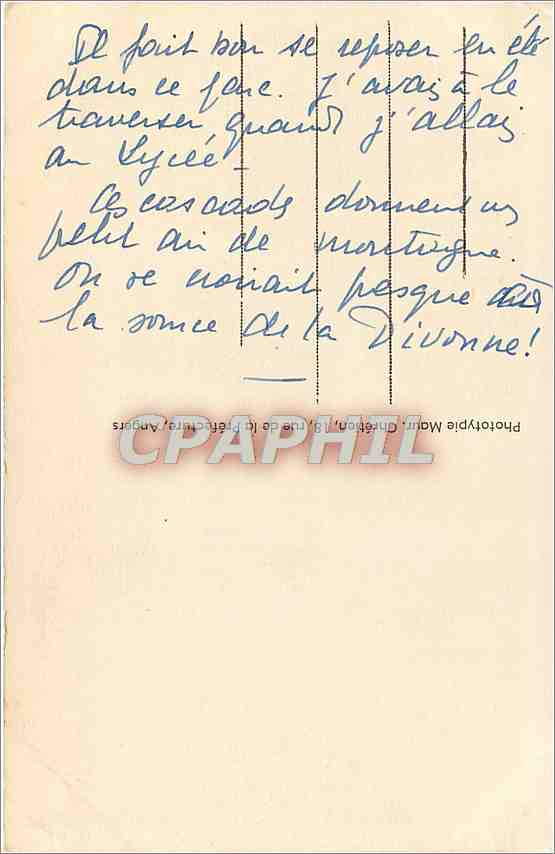 Il fait bon se reposer en été
dans ce parc. J'avais à le
traverser quand j'allais
au Lycée –
Ces cascades donnent un
petit air de montagne.
On se croirait presque à
la source de la Divonne!
Phototypie Maur. Chrétien, 18, rue de la Préfecture, Angers
CPAPHIL